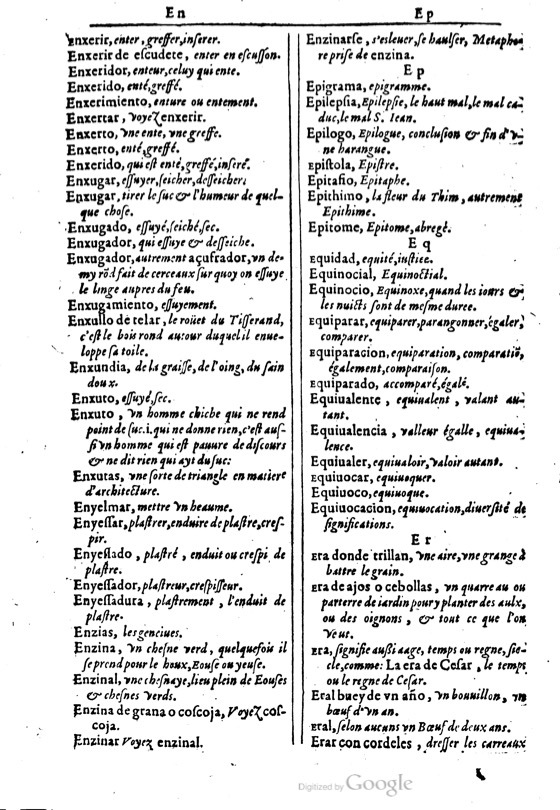 En
Enxerir, enter, greffer, inserer.
Enxerir de escudete, enter en escusson.
Enxeridor, enteur, celuy qui ente.
Enxerido, enté, greffé.
Enxerimiento, enture ou entement.
Enxertar, voyez enxerir.
Enxerto, vne ente, vne greffe.
Enxerto, enté, greffé.
Enxerido, qui est enté, greffé, inseré.
Enxugar, essuyer, seicher, desseicher.
Enxugar, tirer le suc & l'humeur de quel-
que chose.
Enxugado, essuyé, seiché, sec.
Enxugador, qui essuye & desseiche.
Enxugador, autrement açufrador, vn de-
my rõd fait de cerceaux sur quoy on essuye
le linge aupres du feu.
Enxugamiento, essuyement.
Enxullo de telar, le roüet du Tisserand,
c'est le bois rond autour duquel il enue-
loppe sa toile.
Enxundia, de la graisse, de l'oing, du sain
doux.
Enxuto, essuyé, sec.
Enxuto, vn homme chiche qui ne rend
point de suc. i. qui ne donne rien, c'est aus-
si vn homme qui est pauure de discours
& ne dit rien qui ayt du suc:
Enxutas, vne sorte de triangle en matiere
d'architecture.
Enyelmar, mettre vn heaume.
Enyessar, plastrer, enduire de plastre, cres-
pir.
Enyessado, plastré, enduit ou crespi de
plastre.
Enyessador, plastreur, crespisseur.
Enyessadura, plastrement, l'enduit de
plastre.
Enzias, les genciues.
Enzina, vn chesne verd, quelquefois il
se prend pour le houx, Eouse ou yeuse.
Enzinal, vne chesnaye, lieu plein de Eouses
& chesnes verds.
Enzina de grana o coscoja, Voyez cos-
coja.
Enzinar Voyez enzinal.
Ep
Enzinarse, s'esleuer, se haulser, Metapho-
re prise de enzina.
Ep
Epigrama, epigramme.
Epilepsia, Epilepsie, le haut mal, le mal ca-
duc, le mal S. Iean.
Epilogo, Epilogue, conclusion & fin d'v-
ne harangue.
Epistola, Epistre.
Epitafio, Epitaphe.
Epithimo, la fleur du Thim, autrement
Epithime.
Epitome, Epitome, abregé.
Eq
Equidad, equité, iustice.
Equinocial, Equinoctial.
Equinocio, Equinoxe, quand les iours &
les nuicts sont de mesme duree.
Equiparar, equiparer, parangonner, égaler,
comparer.
Equiparacion, equiparation, comparatiõ,
également, comparaison.
Equiparado, accomparé, égalé.
Equiualente, equiualent, valant au-
tant.
Equiualencia, valleur égalle, equiua-
lence.
Equiualer, equiualoir, valoir autant.
Equiuocar, equiuoquer.
Equiuoco, equiuoque.
Equiuocacion, equiuocation, diuersité de
significations.
Er
Era donde trillan, vne aire, vne grange à
battre le grain.
Era de ajos o cebollas, vn quarreau ou
parterre de iardin pour y planter des aulx,
ou des oignons, & tout ce que l'on
veut.
Era, signifie aussi aage, temps ou regne, sie-
cle, comme: La era de Cesar, le temps
ou le regne de Cesar.
Eral buey de vn año, vn bouuillon, vn
bœuf d'vn an.
Eral, selon aucuns vn Bœuf de deux ans.
Erar con cordeles, dresser les carreaux
Digitized by Google